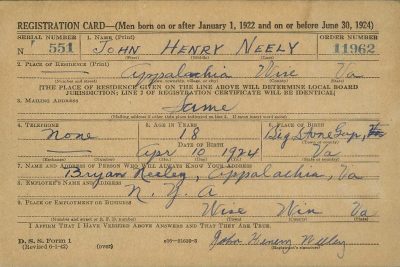 REGISTRATION CARD—(Men born on or after January 1, 1922 and on or before June 30, 1924)
SERIAL NUMBER 1. NAME (Print) ORDER NUMBER
N 551 JOHN HENRY NEELY 11962
(First) (Middle) (Last)
2. PLACE OF RESIDENCE (Print)
Appalachia Wise Va
(Number and street) (Town, township, village, or city) (County) (State)
[THE PLACE OF RESIDENCE GIVEN ON THE LINE ABOVE WILL DETERMINE LOCAL BOARD
JURISDICTION; LINE 2 OF REGISTRATION CERTIFICATE WILL BE IDENTICAL]
3. MAILING ADDRESS
Same
[Mailing address if other than place indicated on line 2. If same insert word same]
4. TELEPHONE 5. AGE IN YEARS 6. PLACE OF BIRTH
None 18 Big Stone Gap,
DATE OF BIRTH
Apr 10 1924 Va
(Exchange) (Number) (Mo.) (Day) (Yr.) (State or country)
7. NAME AND ADDRESS OF PERSON WHO WILL ALWAYS KNOW YOUR ADDRESS
Bryan Neeley, Appalachia, Va
8. EMPLOYER'S NAME AND ADDRESS
N. Y. A
9. PLACE OF EMPLOYMENT OR BUSINESS
Wise Wise Va
(Number and street or R. F. D. number) (Town) (County) (State)
I AFFIRM THAT I HAVE VERIFIED ABOVE ANSWERS AND THAT THEY ARE TRUE.
D. S. S. Form 1
(Revised 6-9-42) (over) John Henery Neeley
(Registrant's signature)